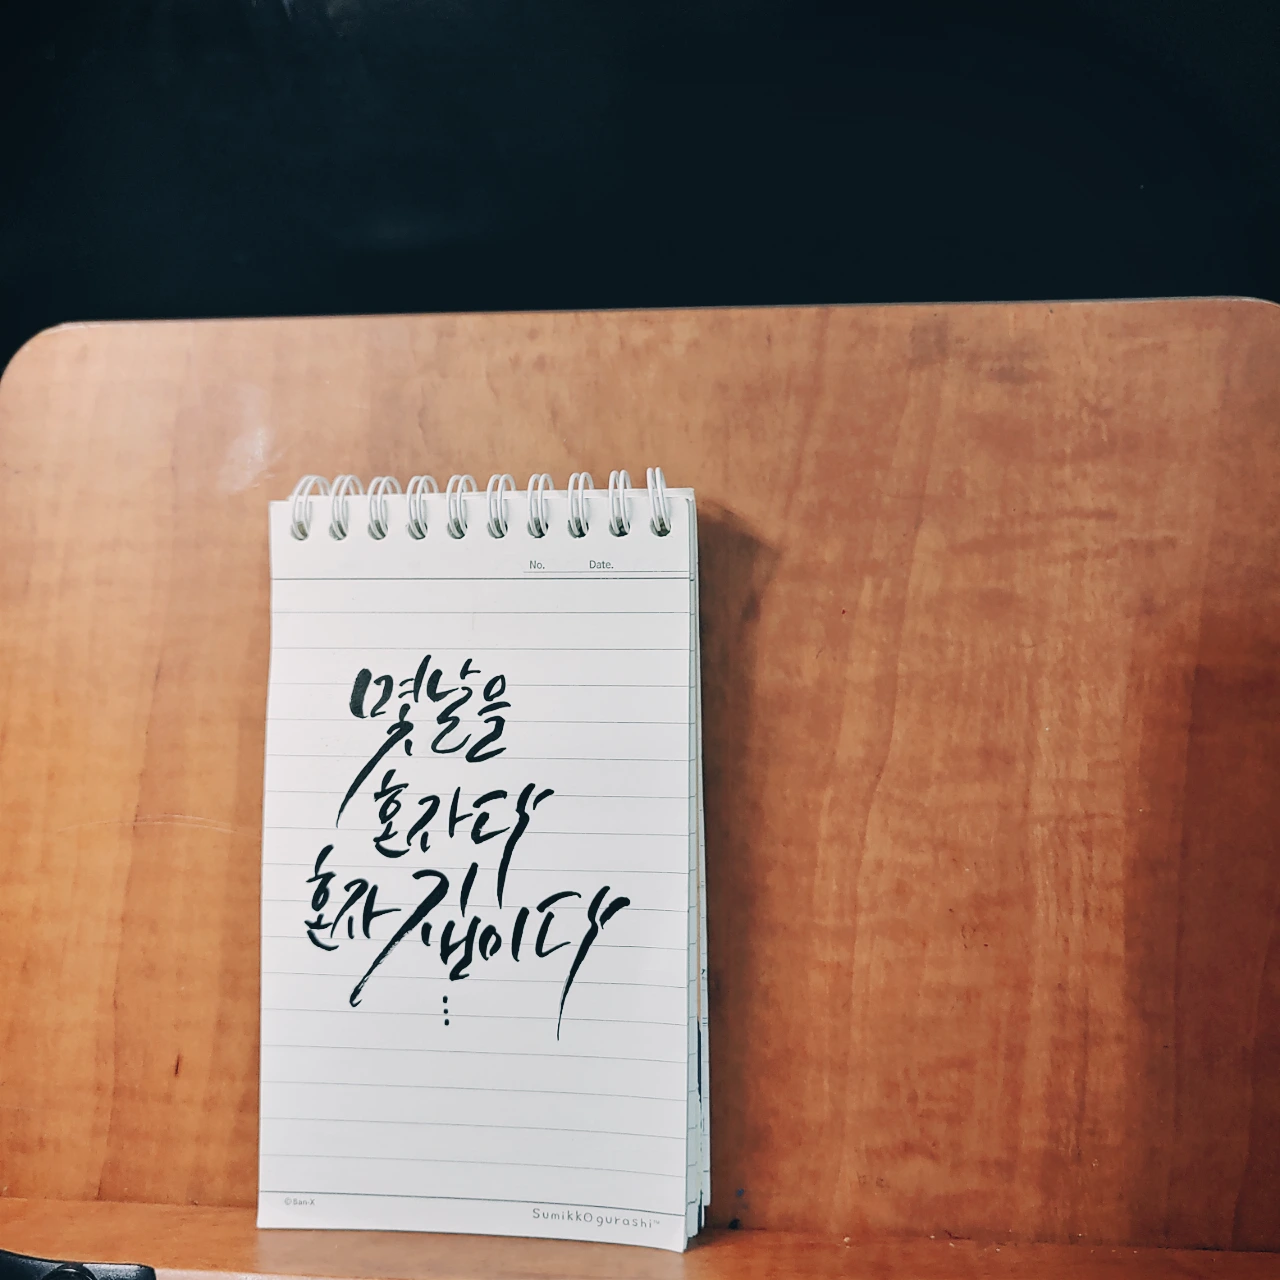 No. Date.
몇날을
혼자다
혼자 집이다
⋮
©San-X
SumikkOgurashi™